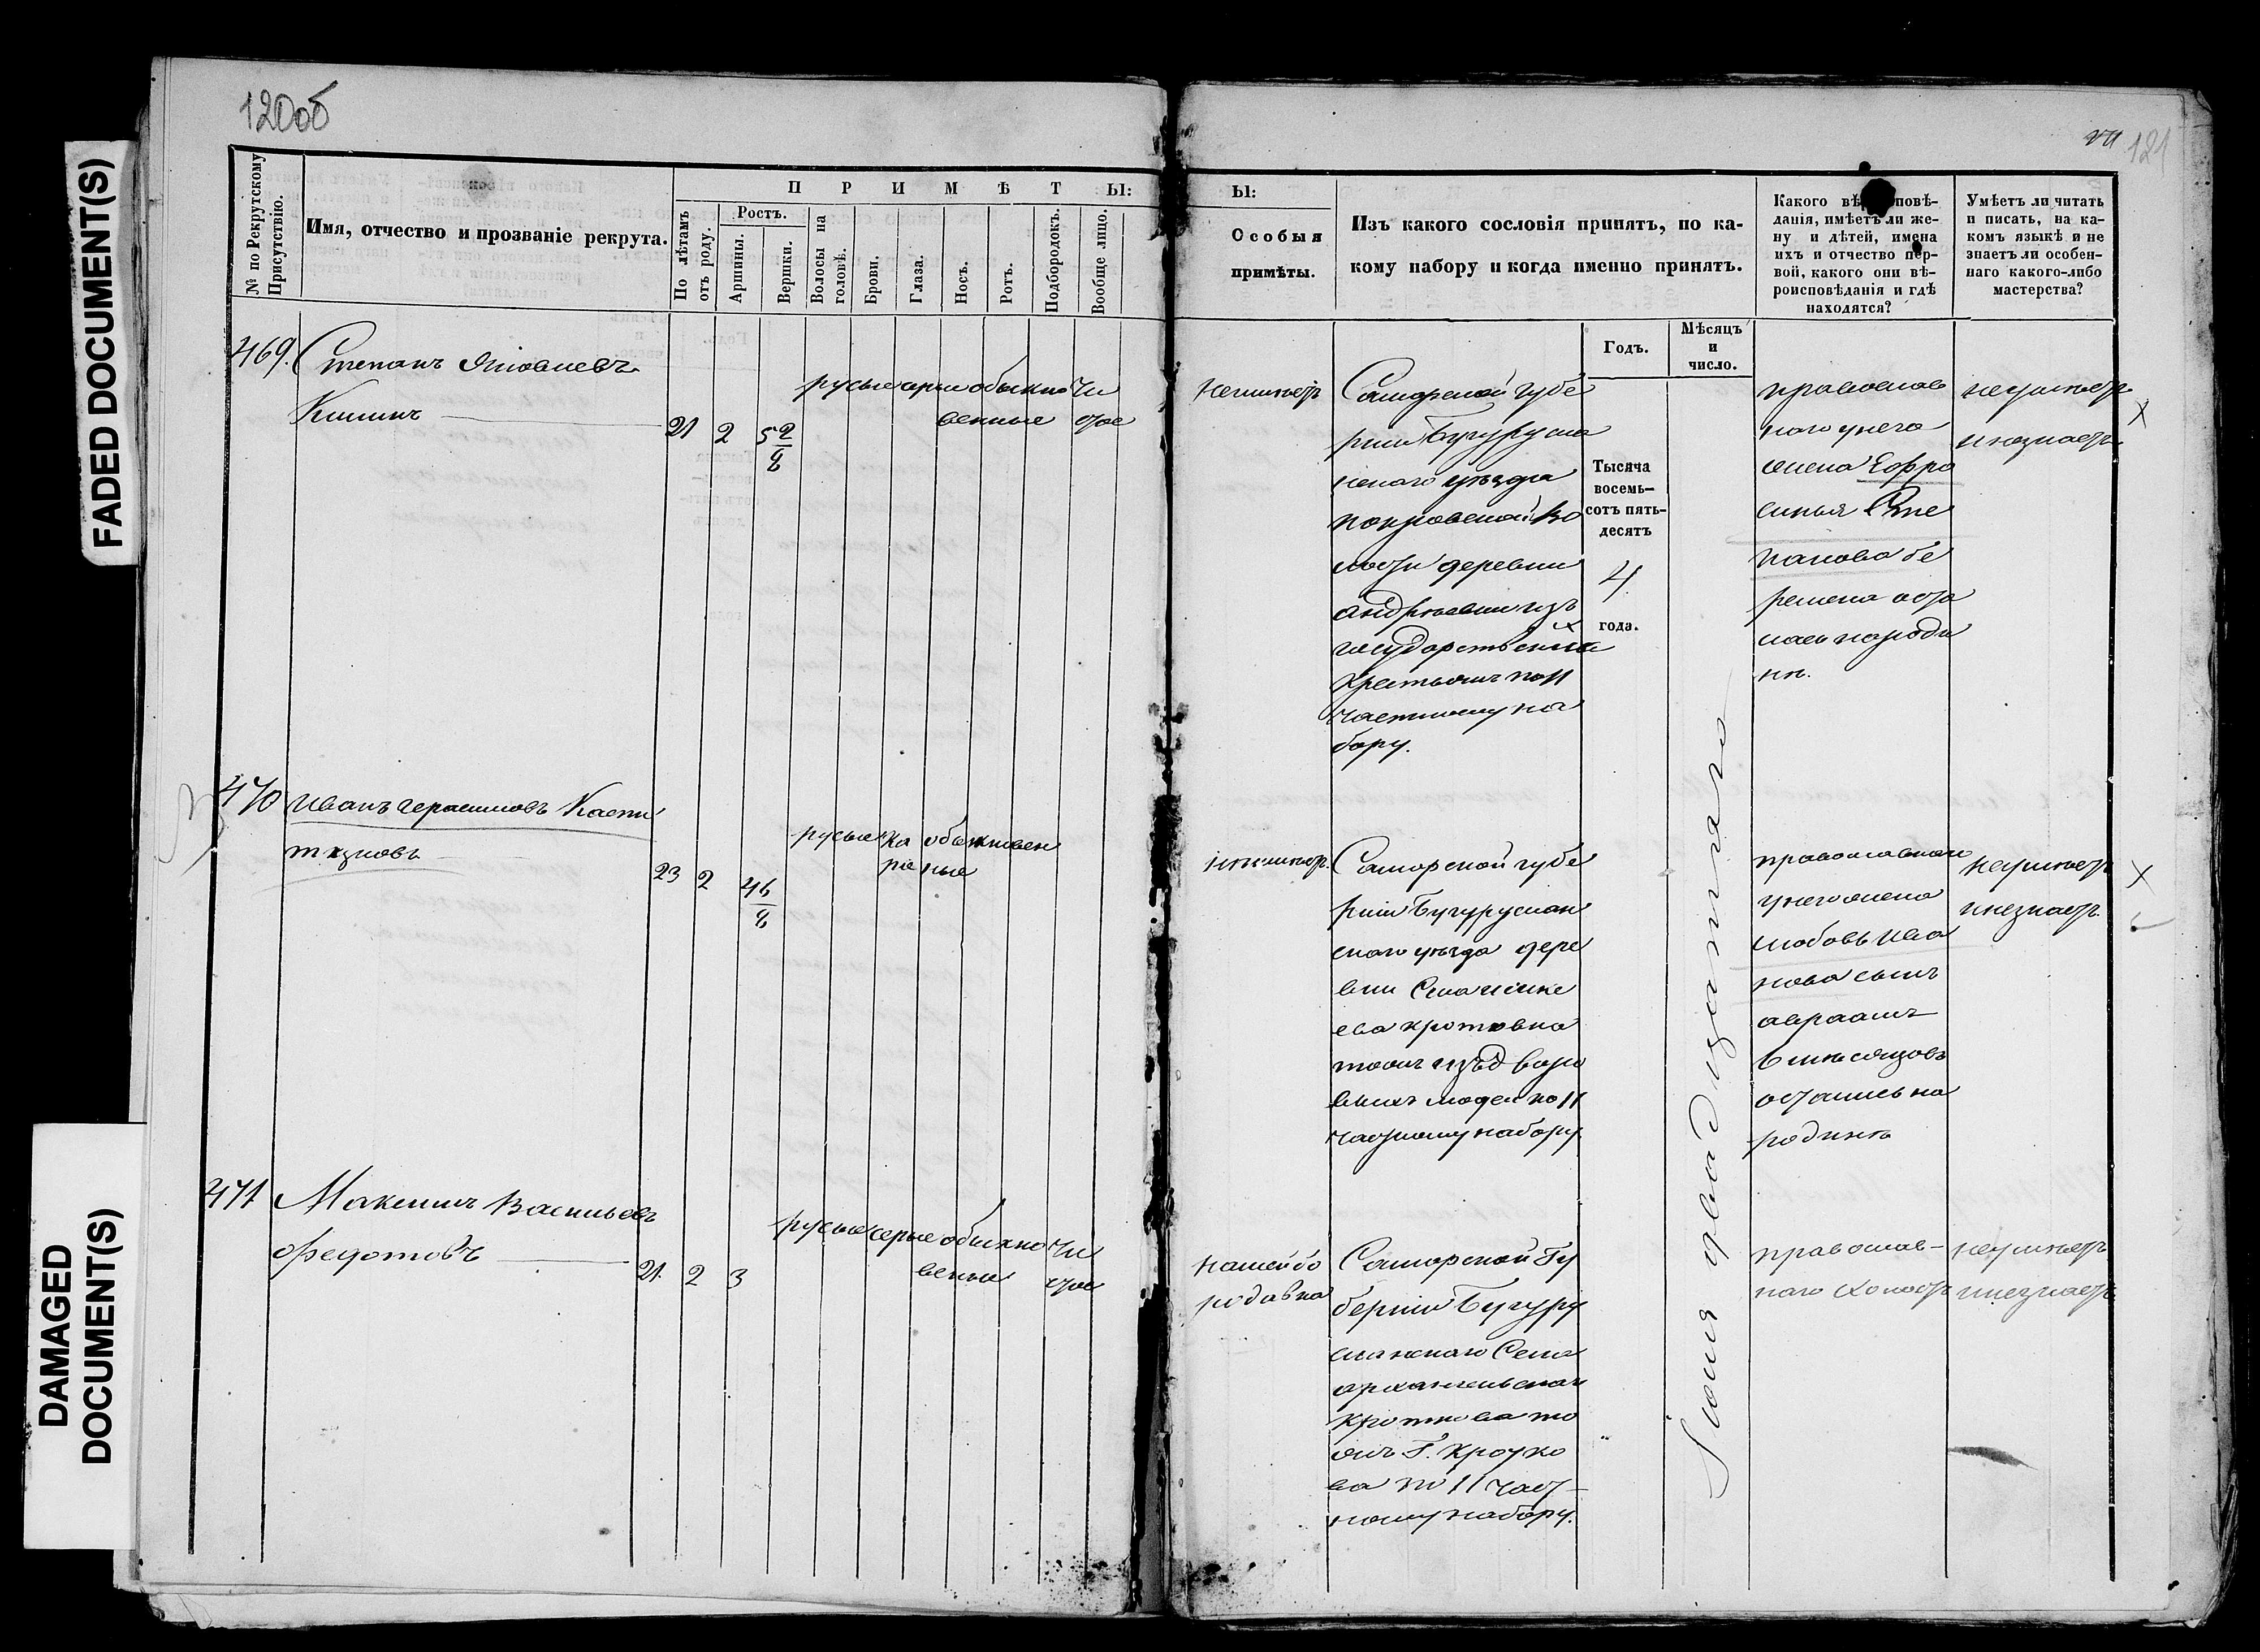 FADED DOCUMENT(S)
DAMAGED
DOCUMENT(S)
120об
121
№ по Рекрутскому
Присутствію.
Имя, отчество и прозваніе рекрута.
П Р И М Ѣ Т Ы:
По лѣтамъ
отъ роду.
Ростъ.
Аршины.
Вершки.
Волосы на
головѣ.
Брови.
Глаза.
Носъ.
Ротъ.
Подбородокъ.
Вообще лицо.
Ы:
Особыя
примѣты.
Изъ какого сословія принятъ, по ка-
кому набору и когда именно принятъ.
Годъ.
Мѣсяцъ
и
число.
Какого вѣ повѣ-
данія, имѣетъ ли же-
ну и дѣтей, имена
ихъ и отчество пер-
вой, какого они вѣ-
роисповѣданія и гдѣ
находятся?
Умѣетъ ли читать
и писать, на ка-
комъ языкѣ и не
знаетъ ли особен-
наго какого-либо
мастерства?
469.
Степанъ Яковлевъ
Кишинъ
21 2 5 2/8
русые серые обыкно чи
венные стое
неимѣетъ
Самарской губе
рніи Бугурусла
нскаго уѣзда
покровской во
лости деревни
андрѣевки изъ
государственных
Крестьянъ по 11
частному на
бору.
Тысяча
восемь-
сотъ пять-
десятъ
4
года.
православ
наго унего
жена Ефро
синья Сте
панова бе
ремена оста
лась народи
нѣ.
неумѣетъ
инезнаетъ
470
Иванъ Герасимовъ Касти
23 2 4 6/8
русые ка обыкновен
ріе ные
неимѣетъ.
Самарской губе
рніи Бугуруслан
скаго уѣзда дере
вни
ева кротовка
тожъ изъ дворо
выхъ людей по 11
частному набору
православнаго
унего жена
любовь Ива
нова сынъ
авраамъ
6 мѣсяцовъ
остались на
родинѣ
неумѣетъ
инезнаетъ.
471
Максимъ Васильевъ
Федотовъ
21. 2 3
русые серые обыкно чи
венные стое
нашей бо
родавка
Самарской Гу
берніи Бугуру
сланскаго Села
архангельскаго
Кроткова то
жъ Г. Кротко
ва по 11 част-
ному набору.
православ-
наго Холостъ
неумѣетъ
инезнаетъ
Іюля двадцатаго